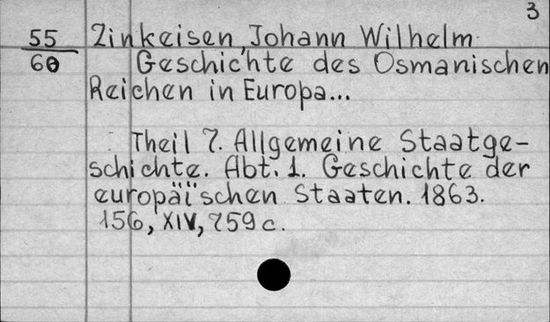 3
55 Zinkeisen, Johann Wilhelm.
60 Geschichte des Osmanischen
Reichen in Europa...
Theil 7. Allgemeine Staatge-
schichte. Abt. 1. Geschichte der
europäïschen Staaten. 1863.
156, XIV, 759 c.